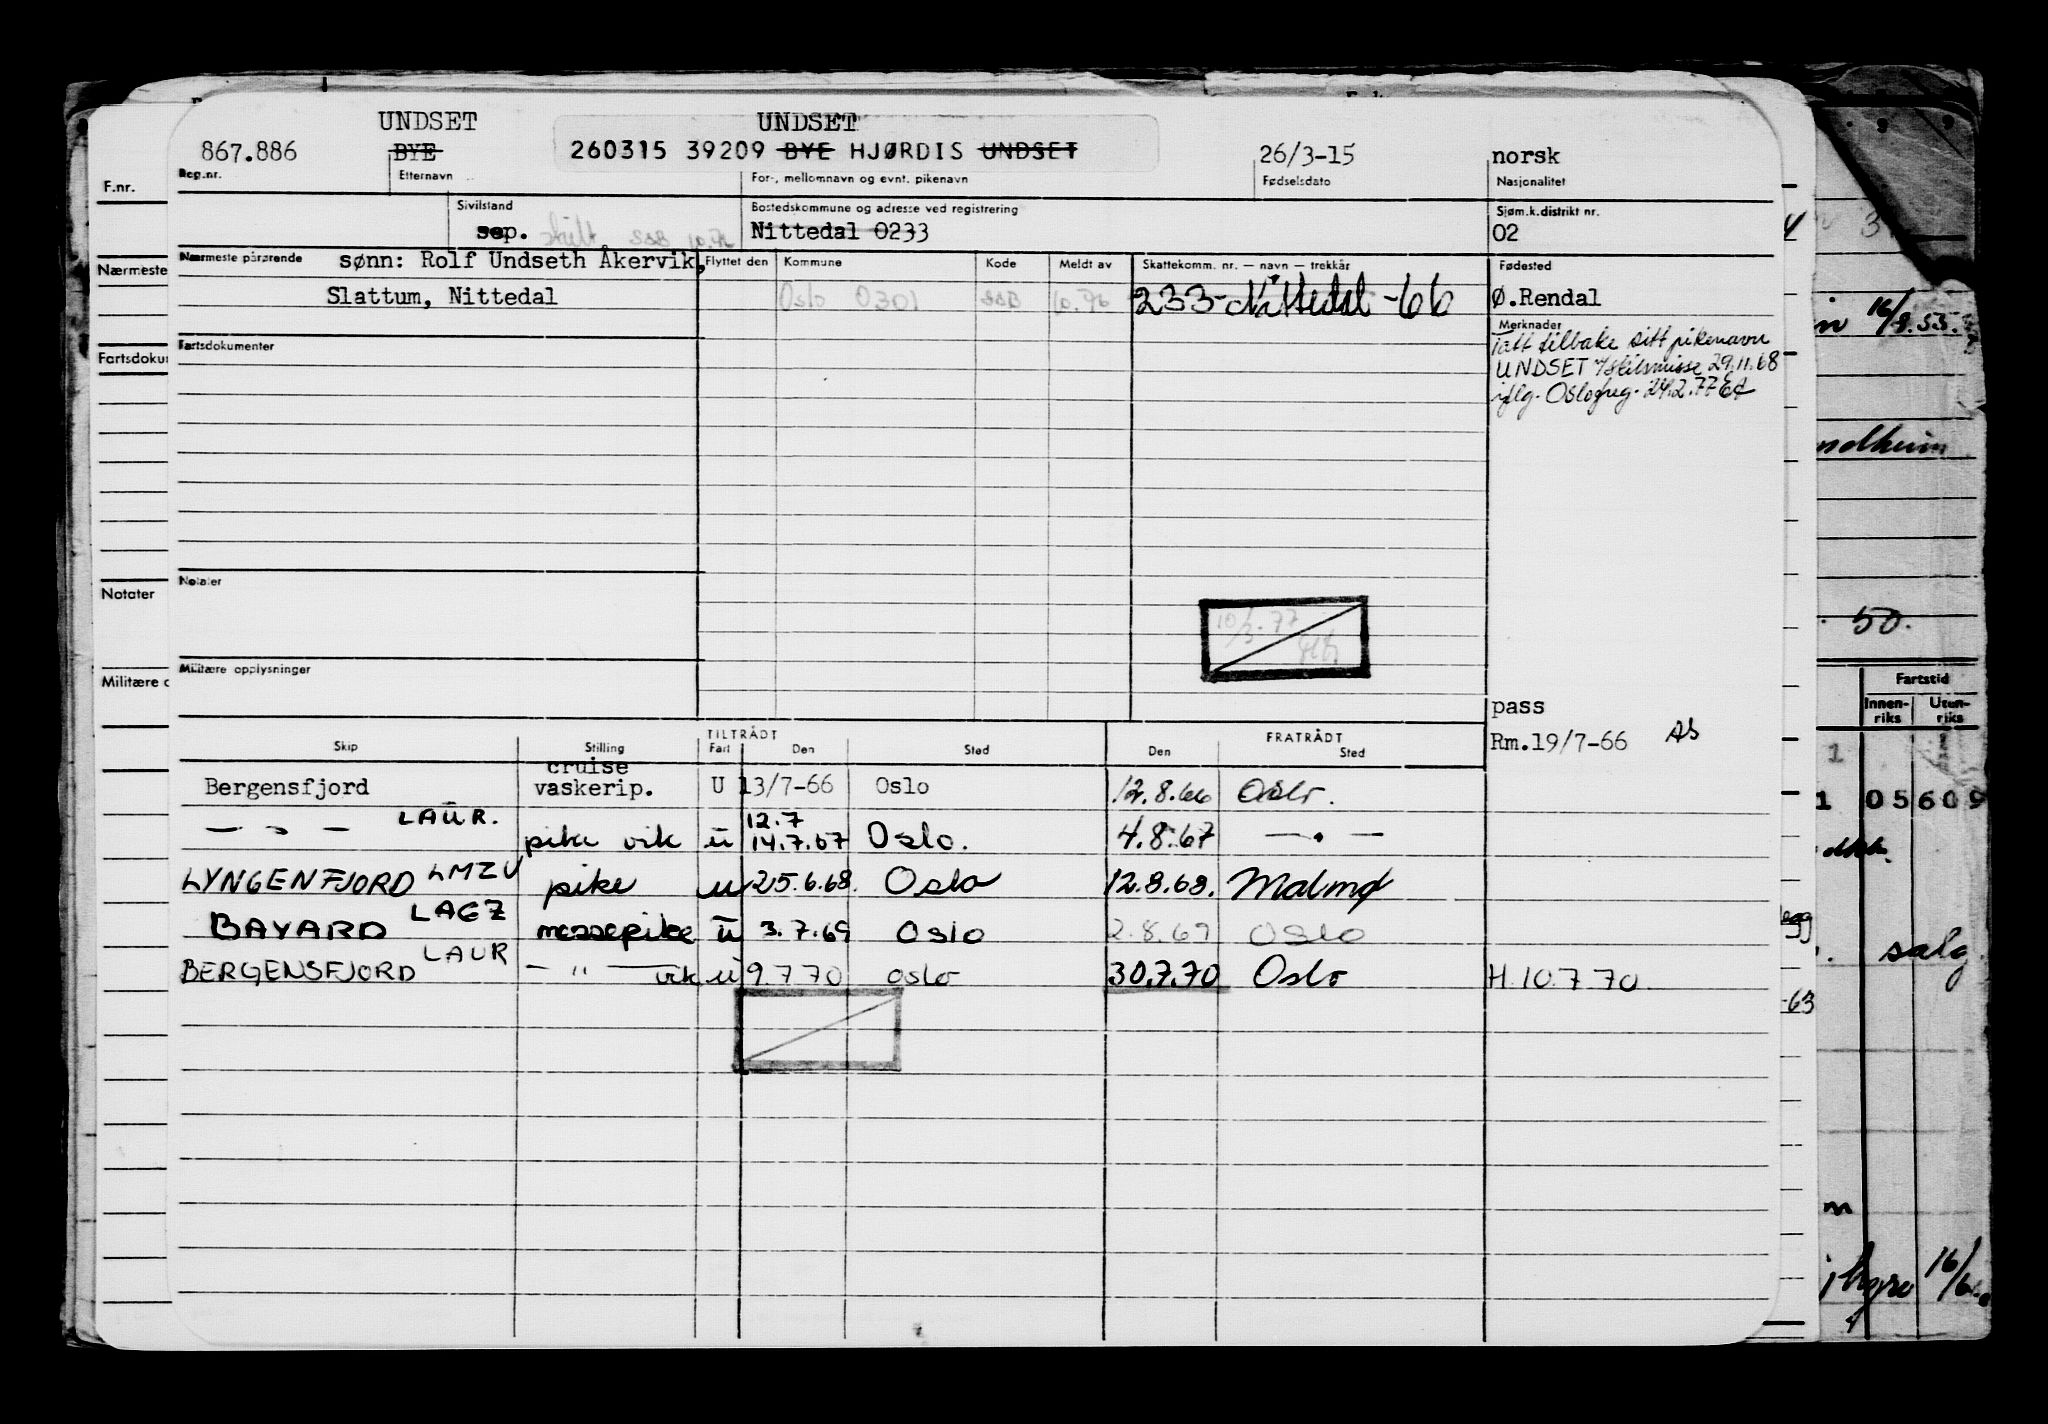 UNDSET UNDSET
867.886 BYE 260315 39209 BYE HJØRDIS UNDSET 26/3-15 norsk
Reg.nr. Etternavn For-, mellomnavn og evnt. pikenavn Fødselsdato Nasjonalitet
F.nr.
Sivilstand Bostedskommune og adresse ved registrering Sjøm.k.distrikt nr.
sep. skilt SSB 10.76 Nittedal 0233 02
Nærmeste pårørende sønn: Rolf Undseth Åkervik, Flyttet den Kommune Kode Meldt av Skattekomm. nr. — navn — trekkår Fødested
Nærmeste
Slattum, Nittedal Oslo 0301 SSB 10.76 233-Nittedal-66 Ø.Rendal
Merknader
Tatt tilbake sitt pikenavn
UNDSET 29.11.68
iflg. Oslo 24.2.77
Fartsdokumenter
Fartsdoku
16/9.53.
ndheim
Notater
Notater
10/3.77
50.
Militære opplysninger
Militære o
Fartstid
Innen-riks Uten-riks
pass
Rm.19/7-66 AS
TILTRÅDT FRATRÅDT
Skip Stilling Fart Den Sted Den Sted
cruise
Bergensfjord vaskerip. U 13/7-66 Oslo 12.8.66 Oslo.
1 05609
— " — LAUR. pike vik u 12.7 14.7.67 Oslo. 4.8.67 — " —
LYNGENFJORD LMZV pike u 25.6.68. Oslo 12.8.68. Malmø
BAYARD LAEZ messepike u 3.7.69 Oslo 2.8.69 Oslo
salg.
BERGENSFJORD LAUR — " — vik u 9.7.70 oslo 30.7.70 Oslo H.10.7.70.
-63
m
16/6